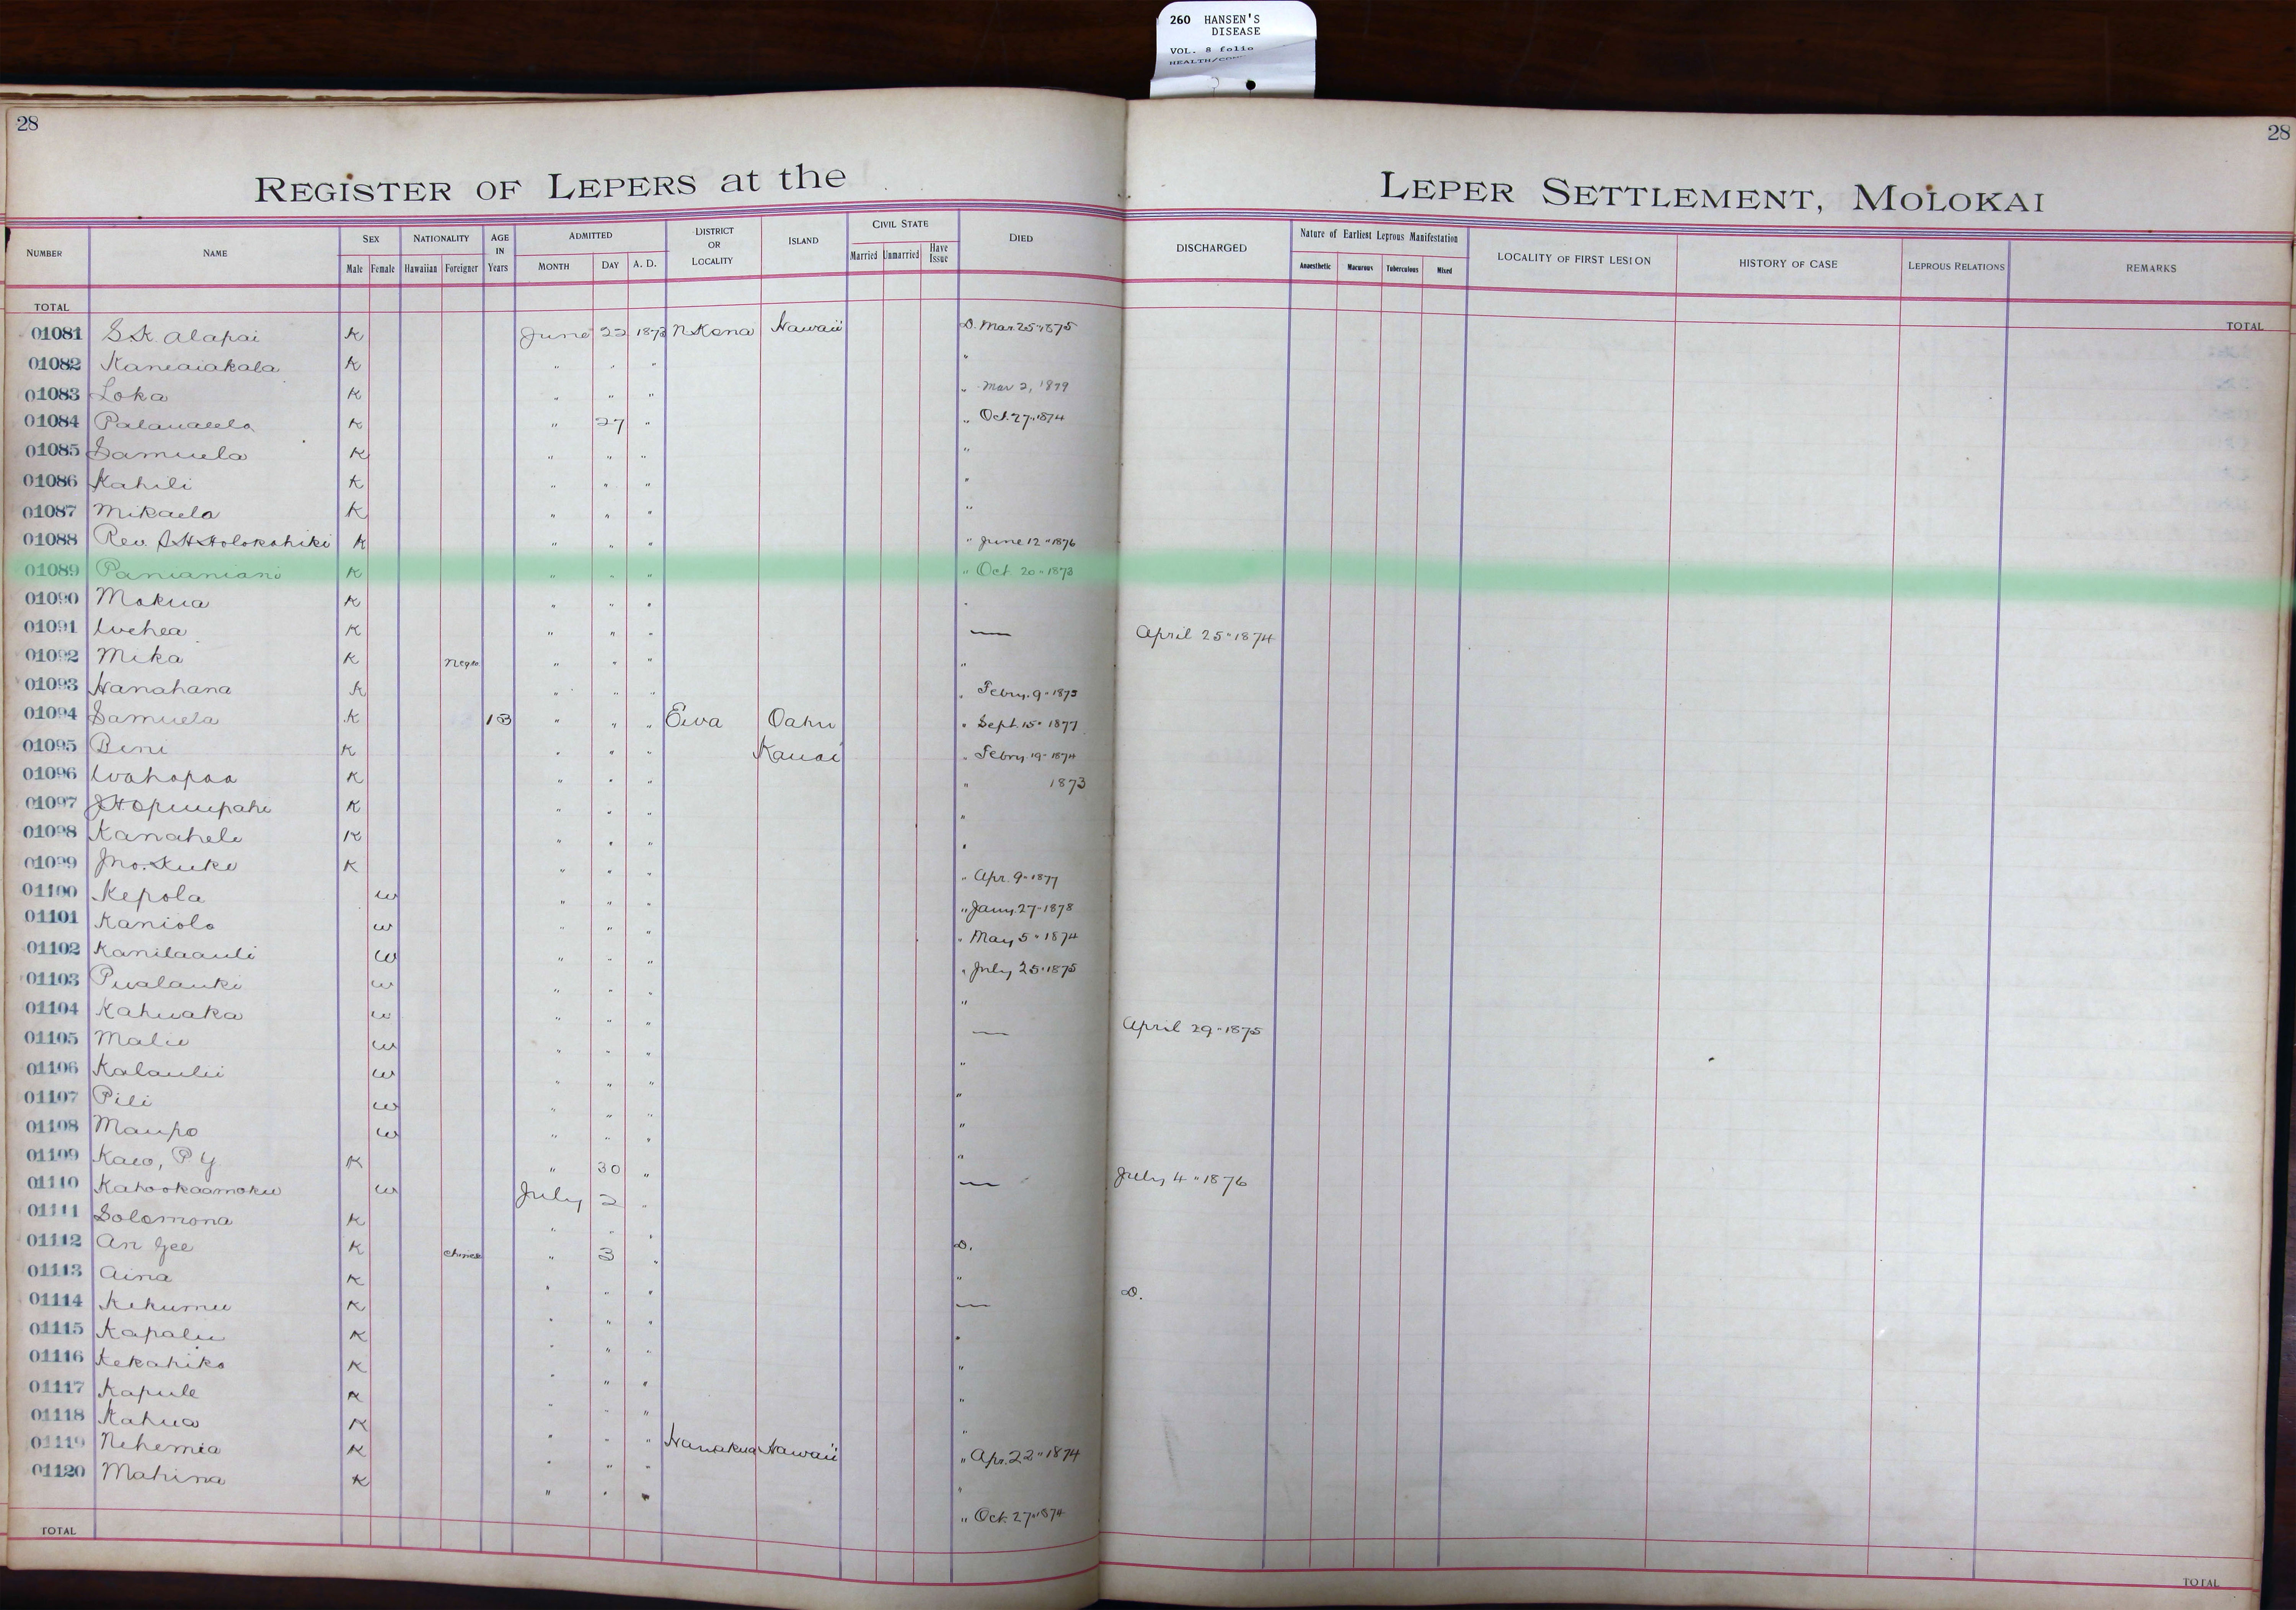 260 HANSEN'S
DISEASE
VOL. 8 folio
28
28
REGISTER OF LEPERS at the LEPER SETTLEMENT, MOLOKAI
NUMBER NAME SEX NATIONALITY AGE IN Years ADMITTED DISTRICT OR LOCALITY ISLAND CIVIL STATE DIED DISCHARGED Nature of Earliest Leprous Manifestation LOCALITY OF FIRST LESION HISTORY OF CASE LEPROUS RELATIONS REMARKS
Male Female Hawaiian Foreigner MONTH DAY A. D. Married Unmarried Have Issue Anaesthetic Macurous Tuberculous Mixed
TOTAL TOTAL
01081 S.K. Alapai K June 22 1873 N Kona Hawaii D. Mar. 25 " 1875
01082 Kaneaiakala K " " " "
01083 Loka K " " " " Mar 2, 1879
01084 K " 27 " " Oct. 27 " 1874
01085 Samuela K " " " "
01086 Kahili K " " " "
01087 Mikaela K " " " "
01088 Rev. S H Holokahiki K " " " " June 12 " 1876
01089 Panianiani K " " " " Oct. 20 " 1873
01090 Mokua K " " " "
01091 Wehea K " " " — April 25 " 1874
01092 Mika K Negro " " " "
01093 Hanahana K " " " " Febry. 9 " 1875
01094 Samuela K 13 " " " Ewa Oahu " Sept. 15 " 1877
01095 Beni K " " " Kauai " Febry 19 " 1874
01096 Wahapaa K " " " " 1873
01097 J.H. Opiuupahi K " " " "
01098 Kanahele K " " " "
01099 Jno. Kuke K " " " " Apr. 9 " 1877
01100 Kepola W " " " " Jany. 27 " 1878
01101 Kaniolo W " " " " May 5 " 1874
01102 Kanilaauli W " " " " July 25 " 1875
01103 Pualauki W " " " "
01104 Kahuaka W " " " — April 29 " 1875
01105 Malie W " " " "
01106 Kalaulii W " " " "
01107 Pili W " " " "
01108 Maupo W " " " "
01109 Kaeo, P Y K " 30 " — July 4 " 1876
01110 Kahookaamoku W July 2 "
01111 Solomona K " " " D.
01112 An Gee K Chinese " 3 " "
01113 Aina K " " " — D.
01114 Kekumu K " " " "
01115 Kapalu K " " " "
01116 Kekahiko K " " " "
01117 Kapule K " " " "
01118 Kahua K " " "
01119 Nehemia K " " " Hamakua Hawaii " Apr. 22 " 1874
01120 Mahina K " " " " Oct. 27 " 1874
TOTAL TOTAL